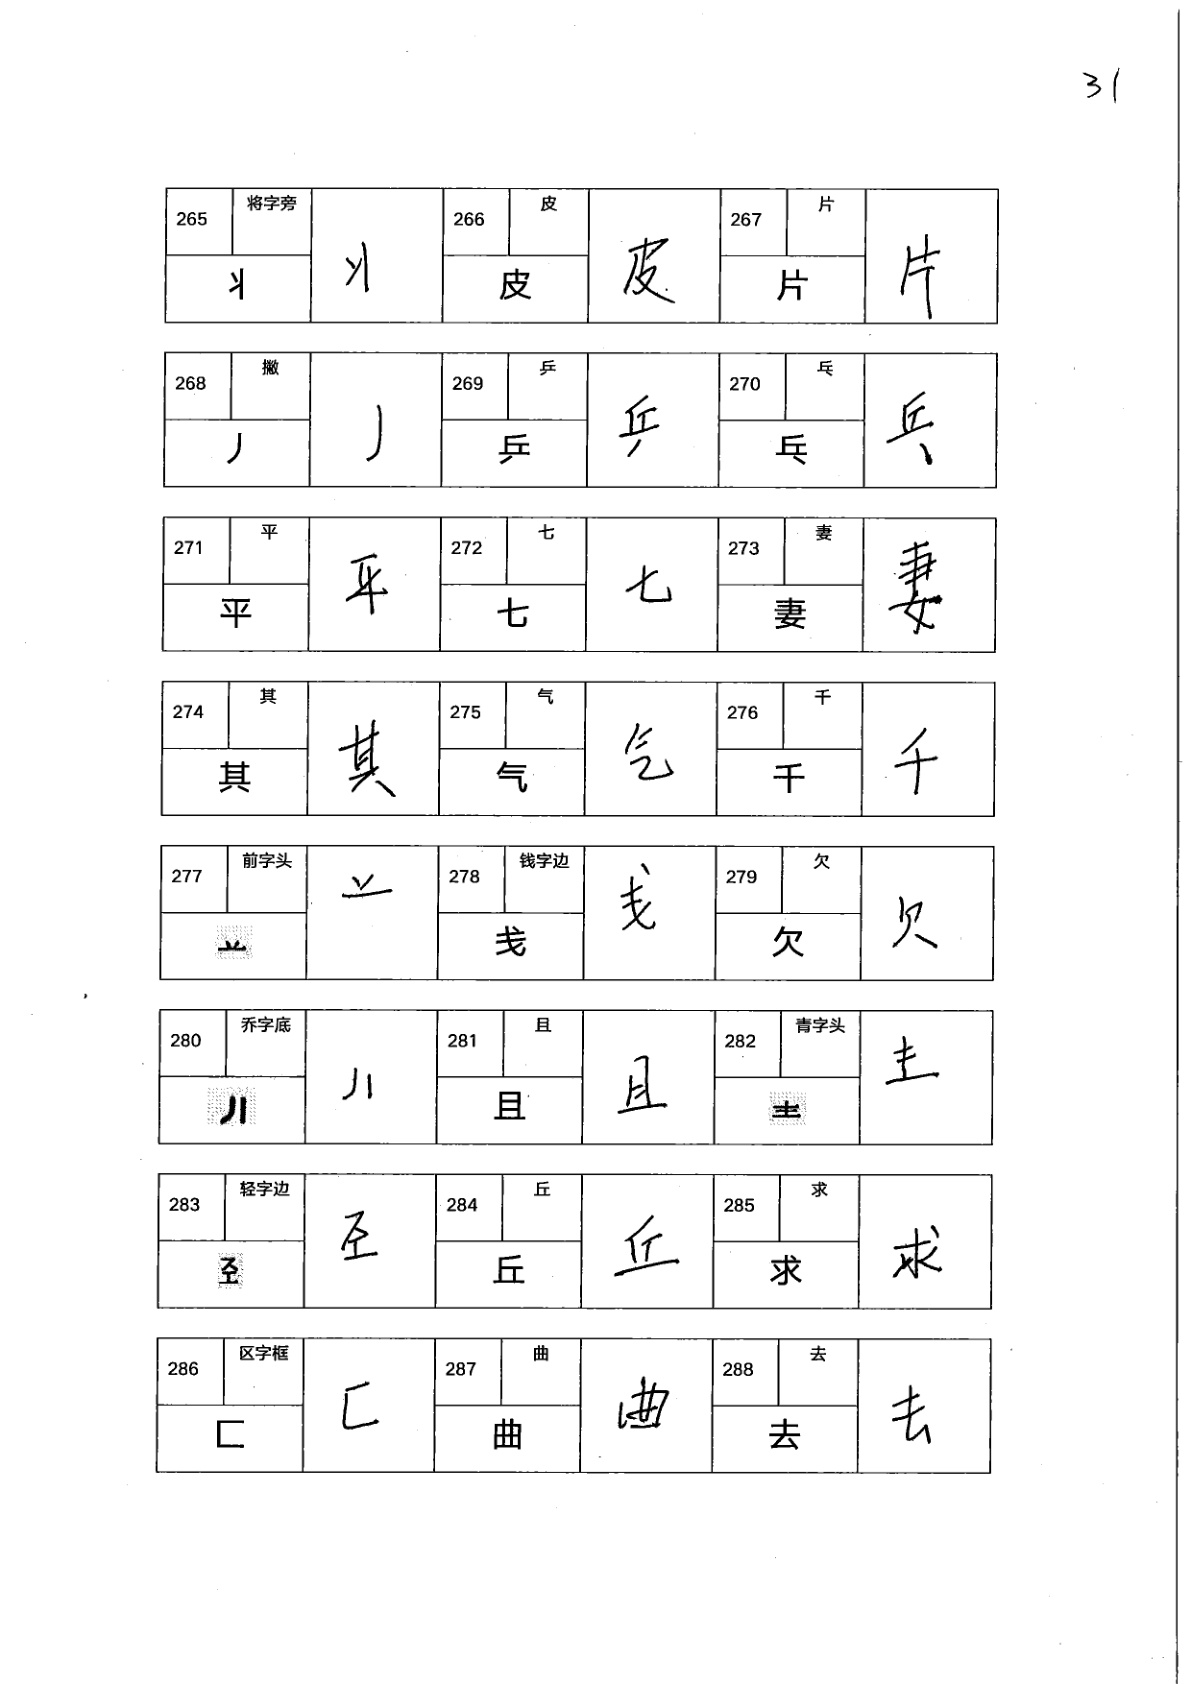 31
265 将字旁 丬 丬 266 皮 皮 皮 267 片 片 片
268 撇 丿 丿 269 乒 乒 乒 270 乓 乓 乓
271 平 平 平 272 七 七 七 273 妻 妻 妻
274 其 其 其 275 气 气 气 276 千 千 千
277 前字头 䒑 䒑 278 钱字边 戋 戋 279 欠 欠 欠
280 乔字底 丿丨 丿丨 281 且 且 且 282 青字头 龶 龶
283 轻字边 𢀖 𢀖 284 丘 丘 丘 285 求 求 求
286 区字框 匚 匚 287 曲 曲 曲 288 去 去 去